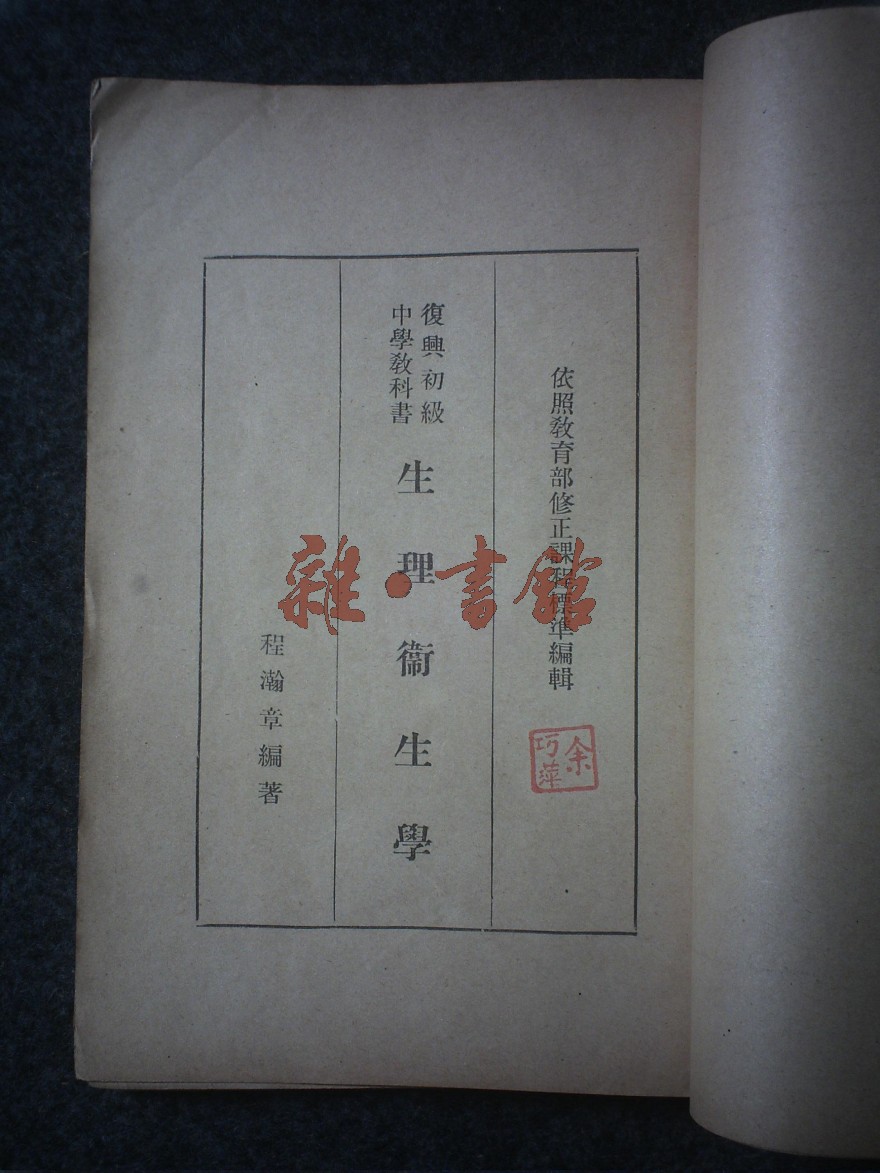 依照教育部修正課程標準編輯
復興初級
中學教科書
生理衞生學
程瀚章編著
余巧萍
雜·書館